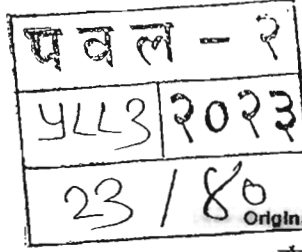 पवल - २
५८८३ २०२३
२३ / ४०
Origin